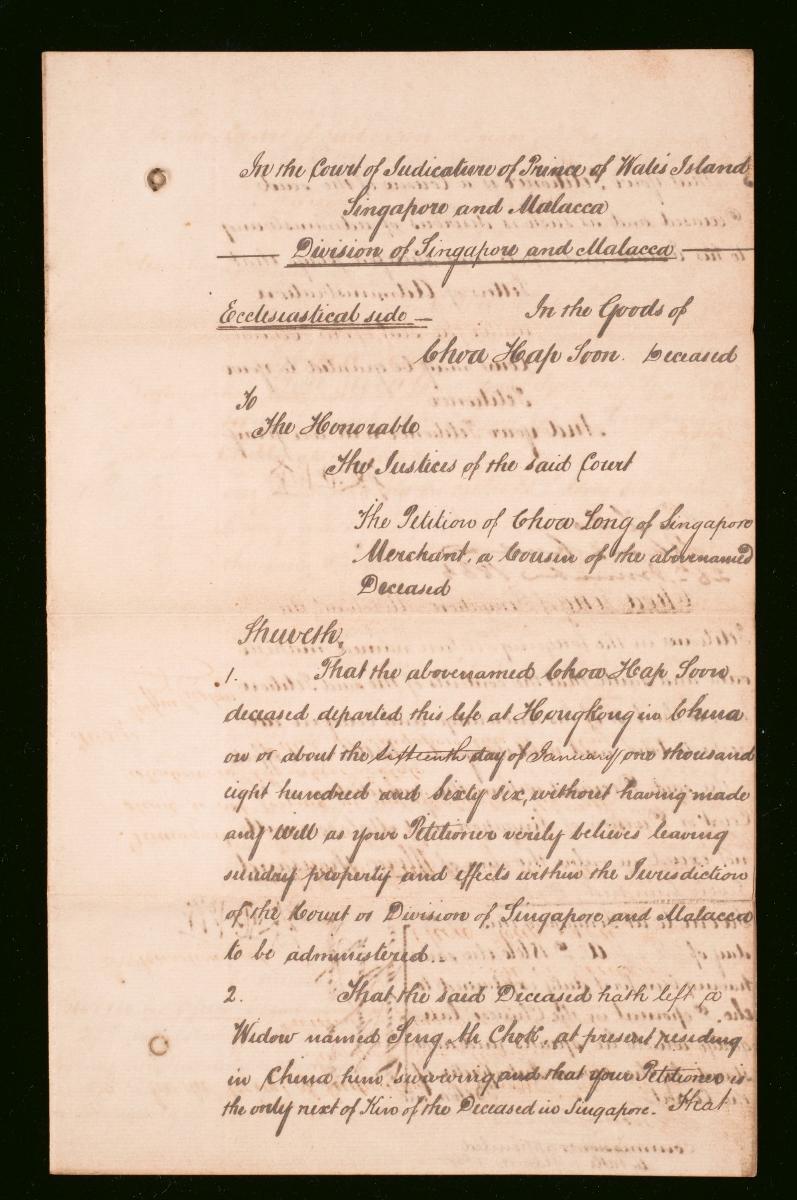 In the Court of Judicature of Prince of Wales Island
Singapore and Malacca
Division of Singapore and Malacca
Ecclesiastical side — In the Goods of
Choa Hap Soon. Deceased
To
The Honorable
The Justices of the said Court
The Petition of Choa Song of Singapore
Merchant, a Cousin of the abovenamed
Deceased
Sheweth,
1. That the abovenamed Choa Hap Soon
deceased departed this life at Hongkong in China
on or about the fifteenth day of January one thousand
eight hundred and Sixty six, without having made
any Will as your Petitioner verily believes leaving
sundry property and effects within the Jurisdiction
of the Court or Division of Singapore and Malacca
to be administered.
2. That the said Deceased hath left a
Widow named Seng Ah Chok, at present residing
in China him surviving and that your Petitioner is
the only next of Kin of the Deceased in Singapore. That